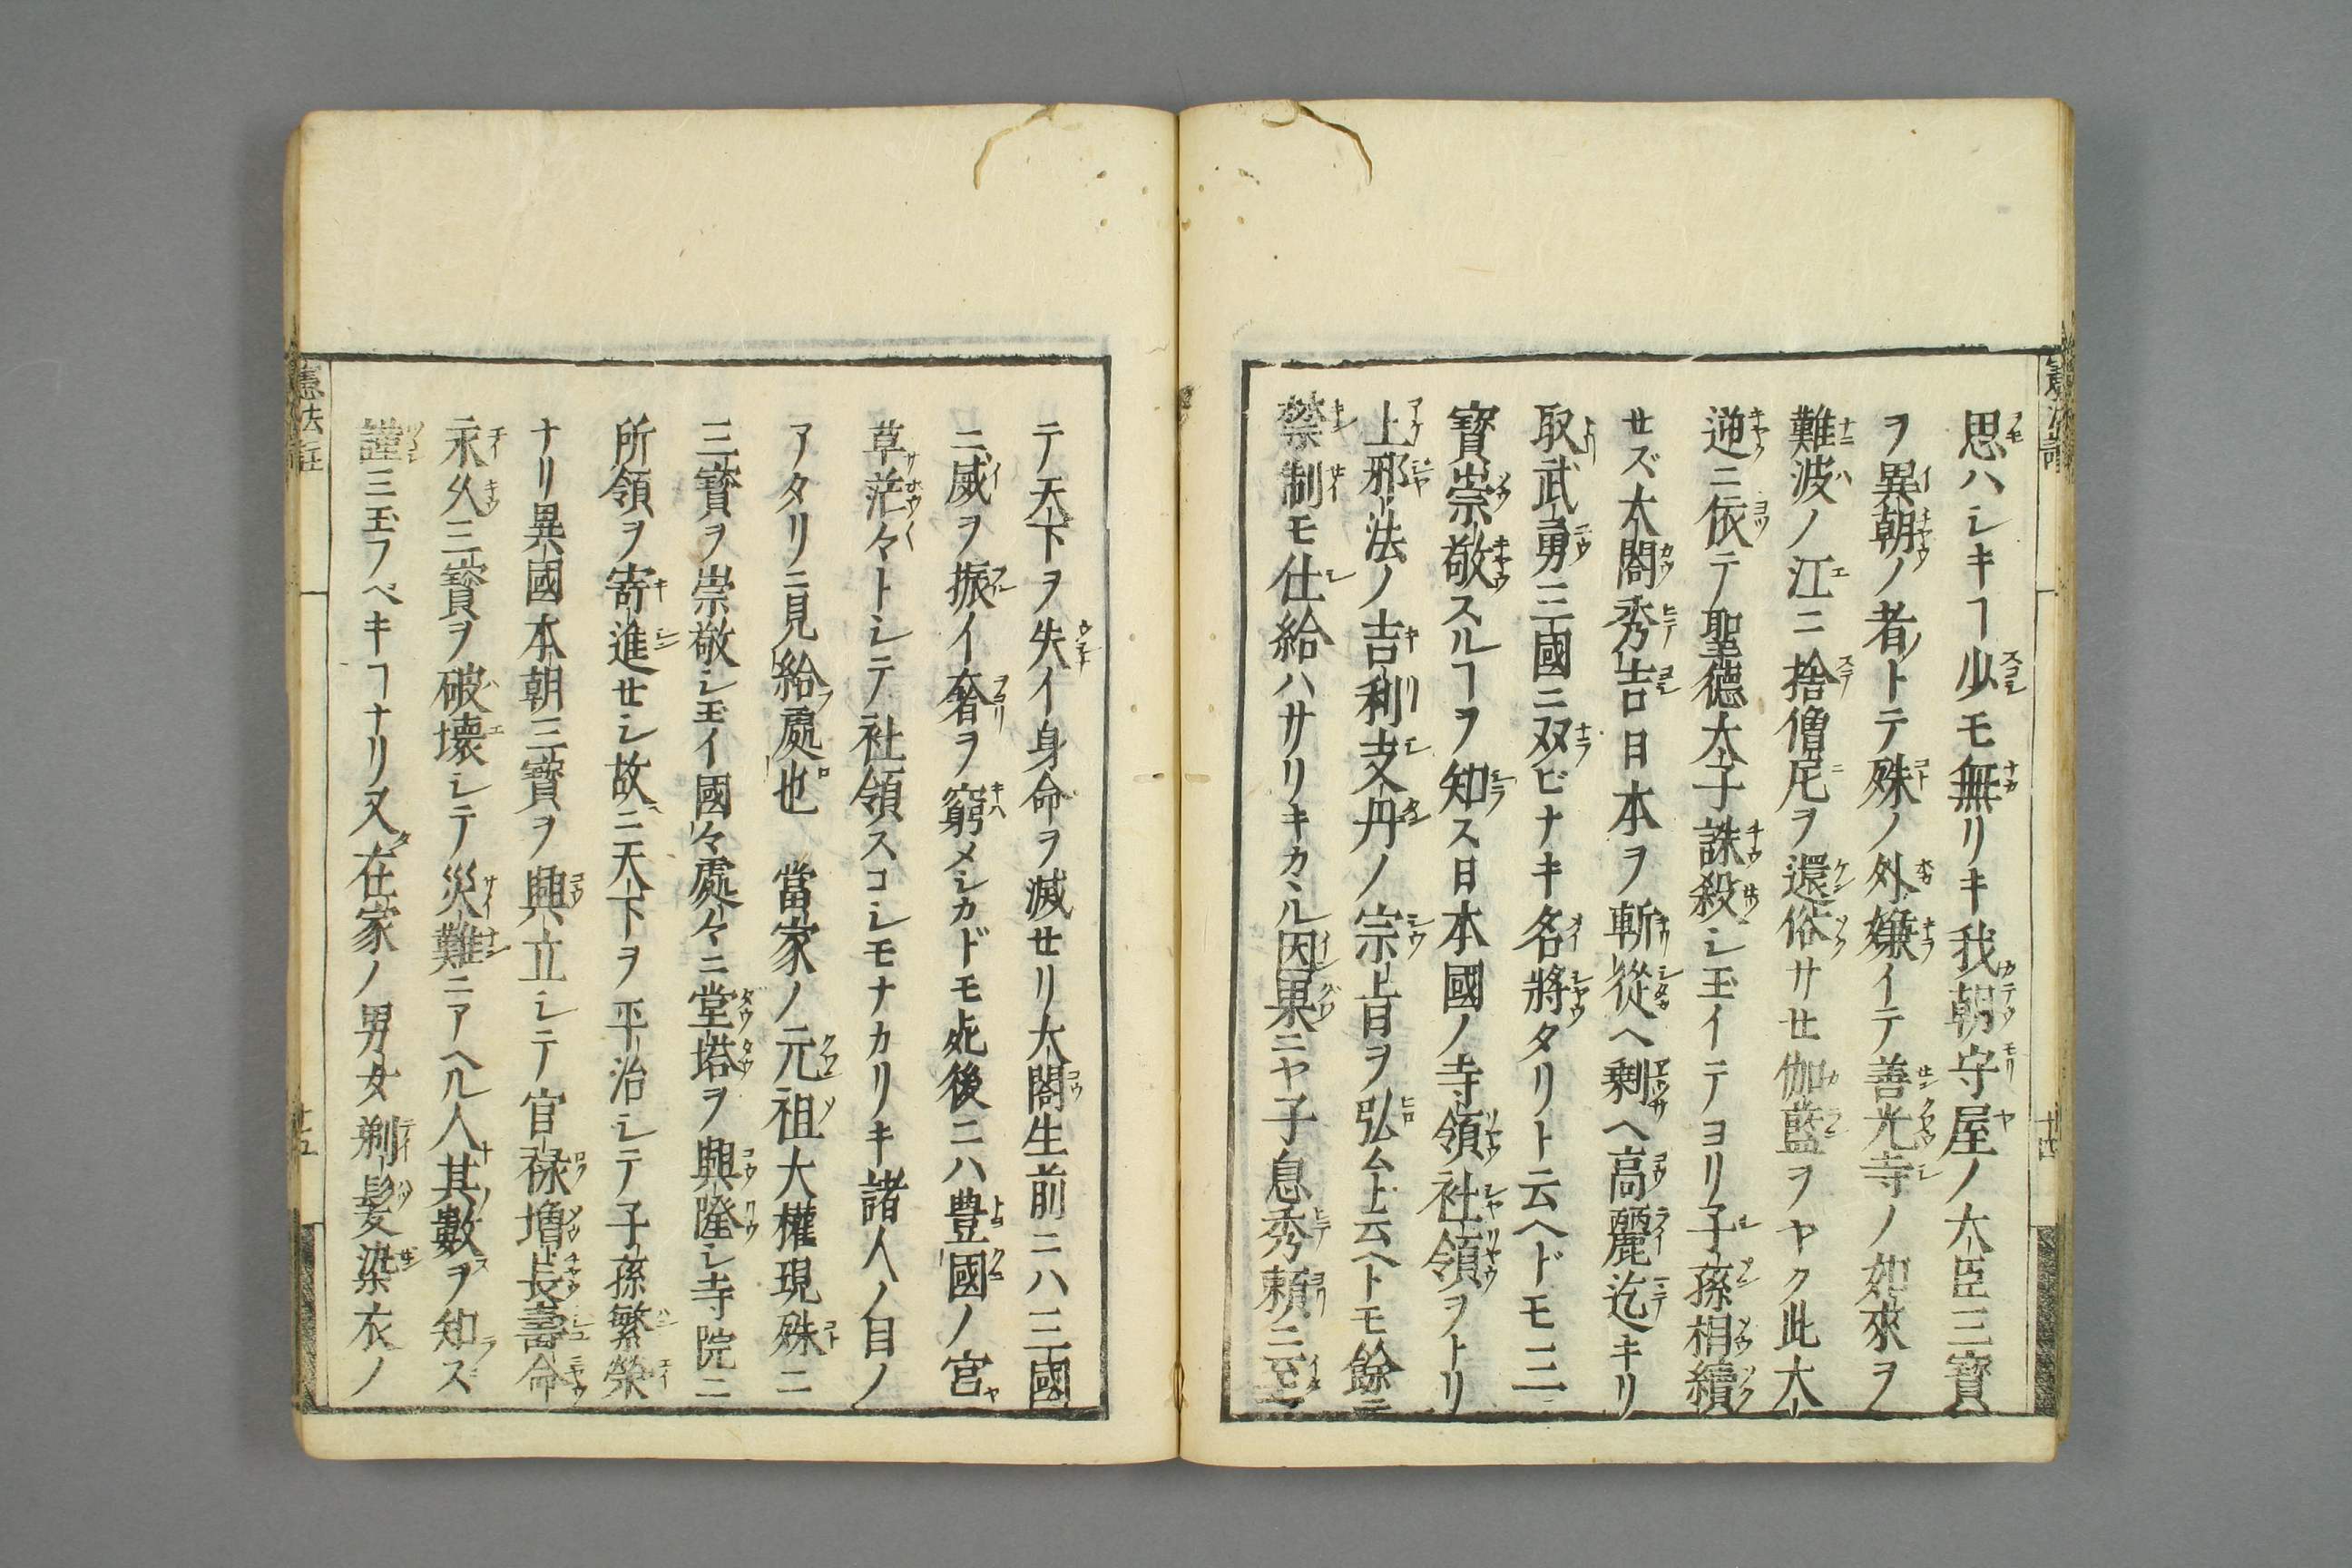 思ハシキヿ少モ無リキ我朝守屋ノ大臣三寳
ヲ異朝ノ者トテ殊ノ外嫌イテ善光寺ノ如來ヲ
難波ノ江ニ捨僧尼ヲ還俗サセ伽藍ヲヤク此大
逆ニ依テ聖徳太子誅殺シ玉イテヨリ子孫相續
セズ太閤秀吉日本ヲ斬從ヘ剰ヘ高麗迄キリ
取武勇三國ニ双ビナキ名將タリト云ヘドモ三
寳崇敬スルヿヲ知ス日本國ノ寺領社領ヲトリ
上邪法ノ吉利支丹ノ宗旨ヲ弘ムト云ヘトモ餘ニ
禁制モ仕給ハサリキカヽル因果ニヤ子息秀頼ノニ至
テ天下ヲ失イ身命ヲ滅セリ大閤生前ニハ三國
ニ威ヲ振イ奢ヲ窮メシカドモ死後ニハ豊國ノ宮
草茫々トシテ社領スコシモナカリキ諸人ノ目ノ
アタリニ見給處也 當家ノ元祖大權現殊ニ
三寳ヲ崇敬シ玉イ國々處々ニ堂塔ヲ興隆シ寺院ニ
所領ヲ寄進セシ故ニ天下ヲ平治シテ子孫繁榮
ナリ異國本朝三寳ヲ興立シテ官禄増長壽命
永久三寳ヲ破壊シテ災難ニアヘル人其數ヲ知ス
謹玉フベキヿナリ又在家ノ男女剃髪染衣ノ
憲法註
十四
憲法註
十五